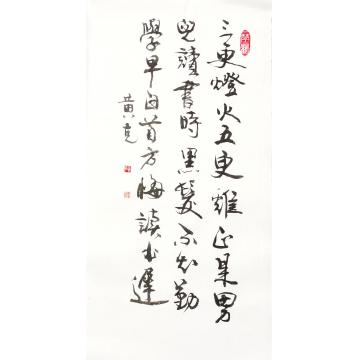 三更燈火五更雞正是男
兒讀書時黑髮不知勤
學早白首方悔讀書遲
黄克